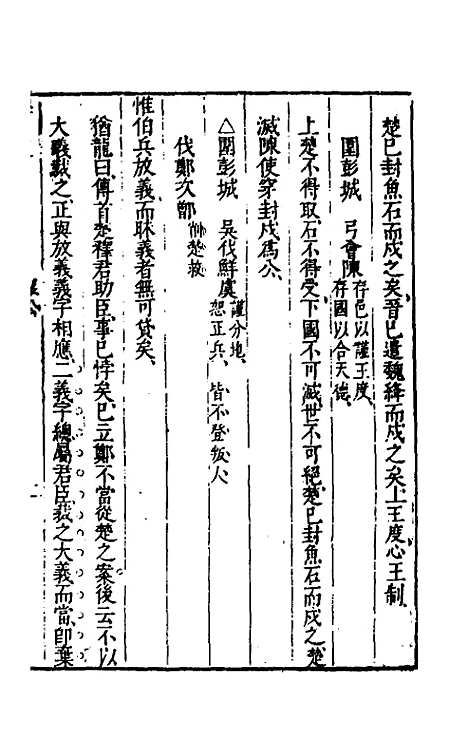 楚已封魚石而戍之矣晉已遣魏絳而戍之矣上王度心王制
圍彭城　弓會陳存邑以謹王度、存國以合天德、
上楚不得取石不得受下國不可滅世不可絕楚已封魚石而戍之、楚
滅陳使穿封戍爲公、
△圍彭城　吳伐鮮虞謹分地、恕正兵、皆不登叛人、
伐鄭次鄫楚救
惟伯兵放義而昧義者無可貸矣、
猶龍曰、傳首楚釋君助臣、事已悖矣、已立鄭不當從楚之案後云不以
大義裁之、正與放義義字相應、二義字總屬君臣裁之大義而當、卽棄